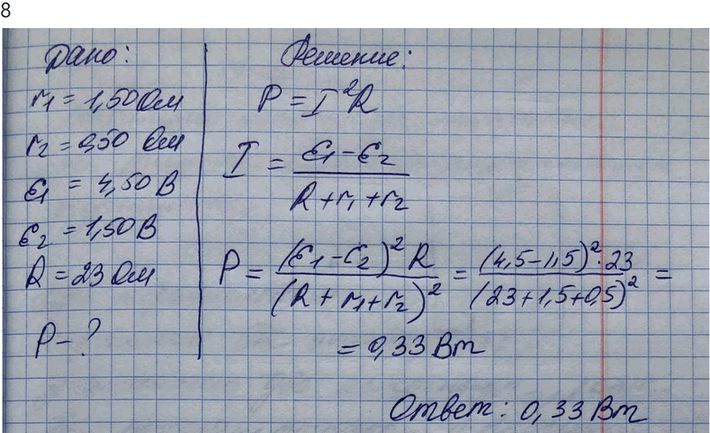 8
Дано:
r₁ = 1,50 Ом
r₂ = 0,50 Ом
ε₁ = 4,50 В
ε₂ = 1,50 В
R = 23 Ом
P - ?
Решение:
P = I²R
I = (ε₁ - ε₂) / (R + r₁ + r₂)
P = (ε₁ - ε₂)² R / (R + r₁ + r₂)² = (4,5 - 1,5)² · 23 / (23 + 1,5 + 0,5)² =
= 0,33 Вт
Ответ: 0,33 Вт